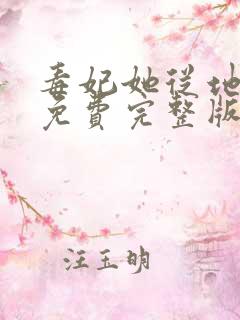 毒妃她从地
免費完整版
汪玉明